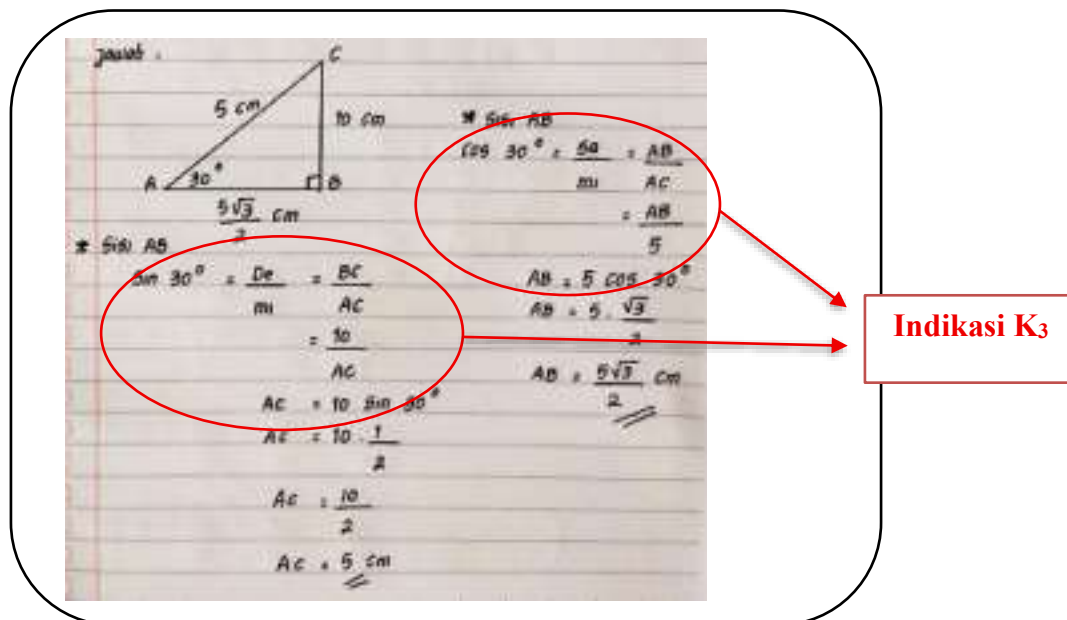 Jawab :
C
5 cm
10 cm
A 30° B
5√3 cm
2
* Sisi AB
Sin 30° = De = BC
mi AC
= 10
AC
AC = 10 Sin 30°
AC = 10 . 1
2
AC = 10
2
AC = 5 cm
* Sisi AB
Cos 30° = Sa = AB
mi AC
= AB
5
AB = 5 cos 30°
AB = 5 . √3
2
AB = 5√3 cm
2
Indikasi K₃